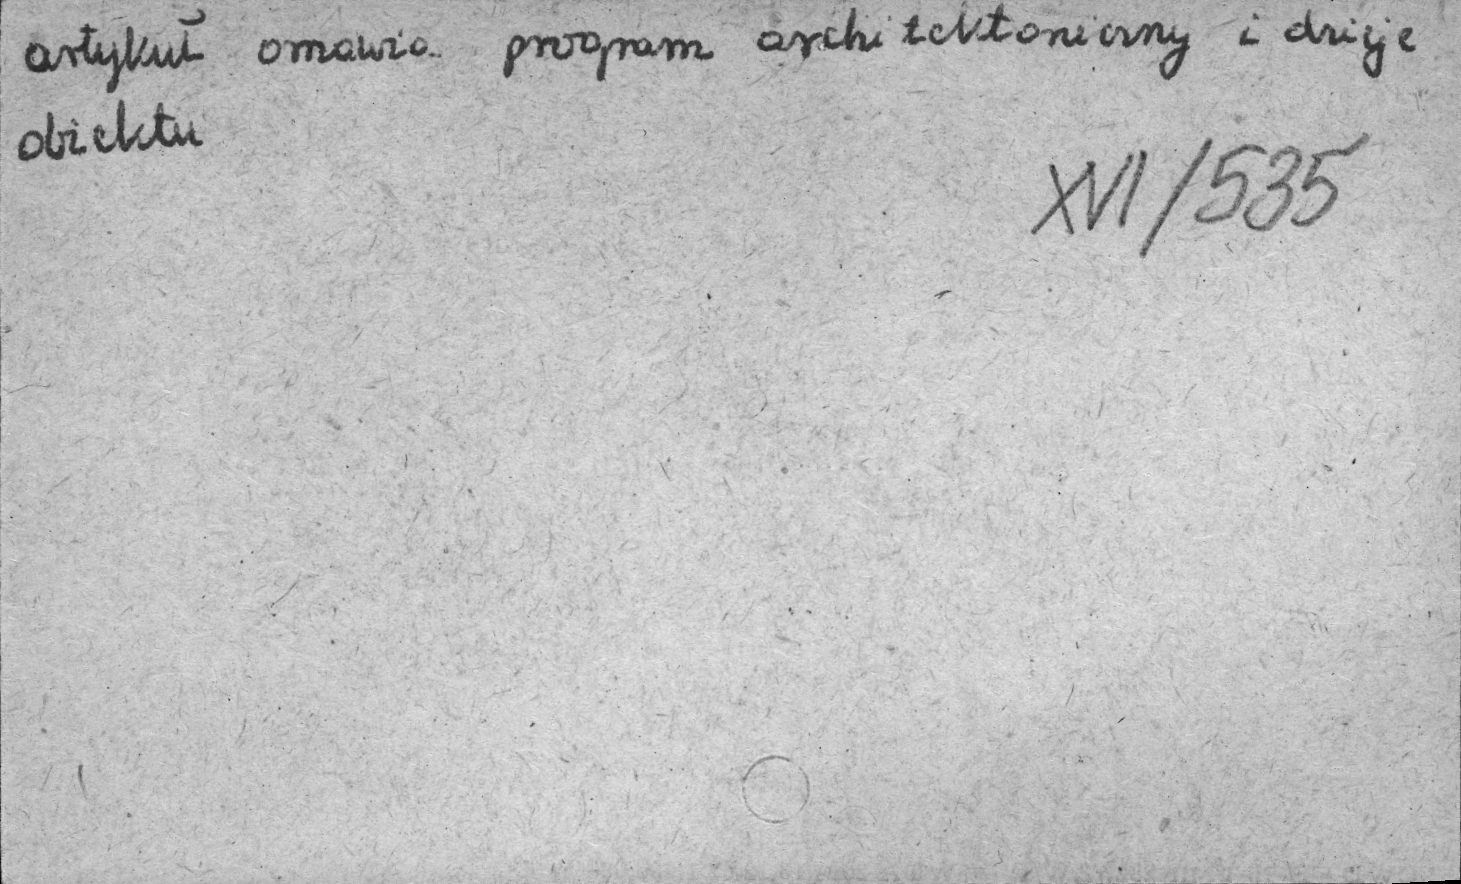 artykuł omawia program architektoniczny i dzieje
obiektu
XVI/535